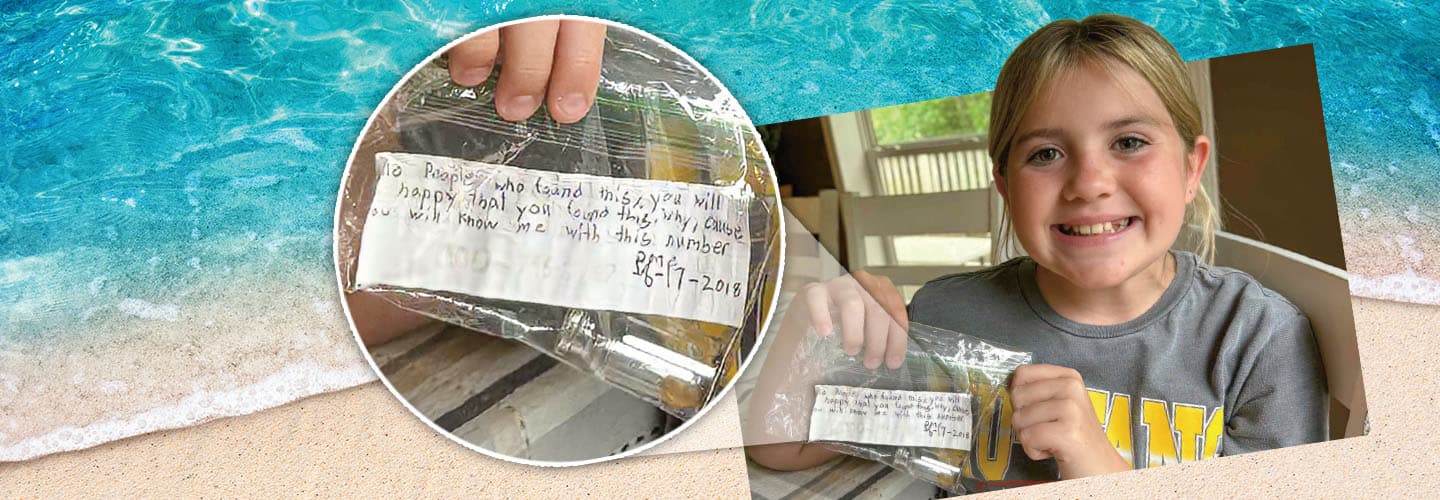 To People who found this, you will
happy that you found this, why, cause
ou will know me with this number
6-17-2018